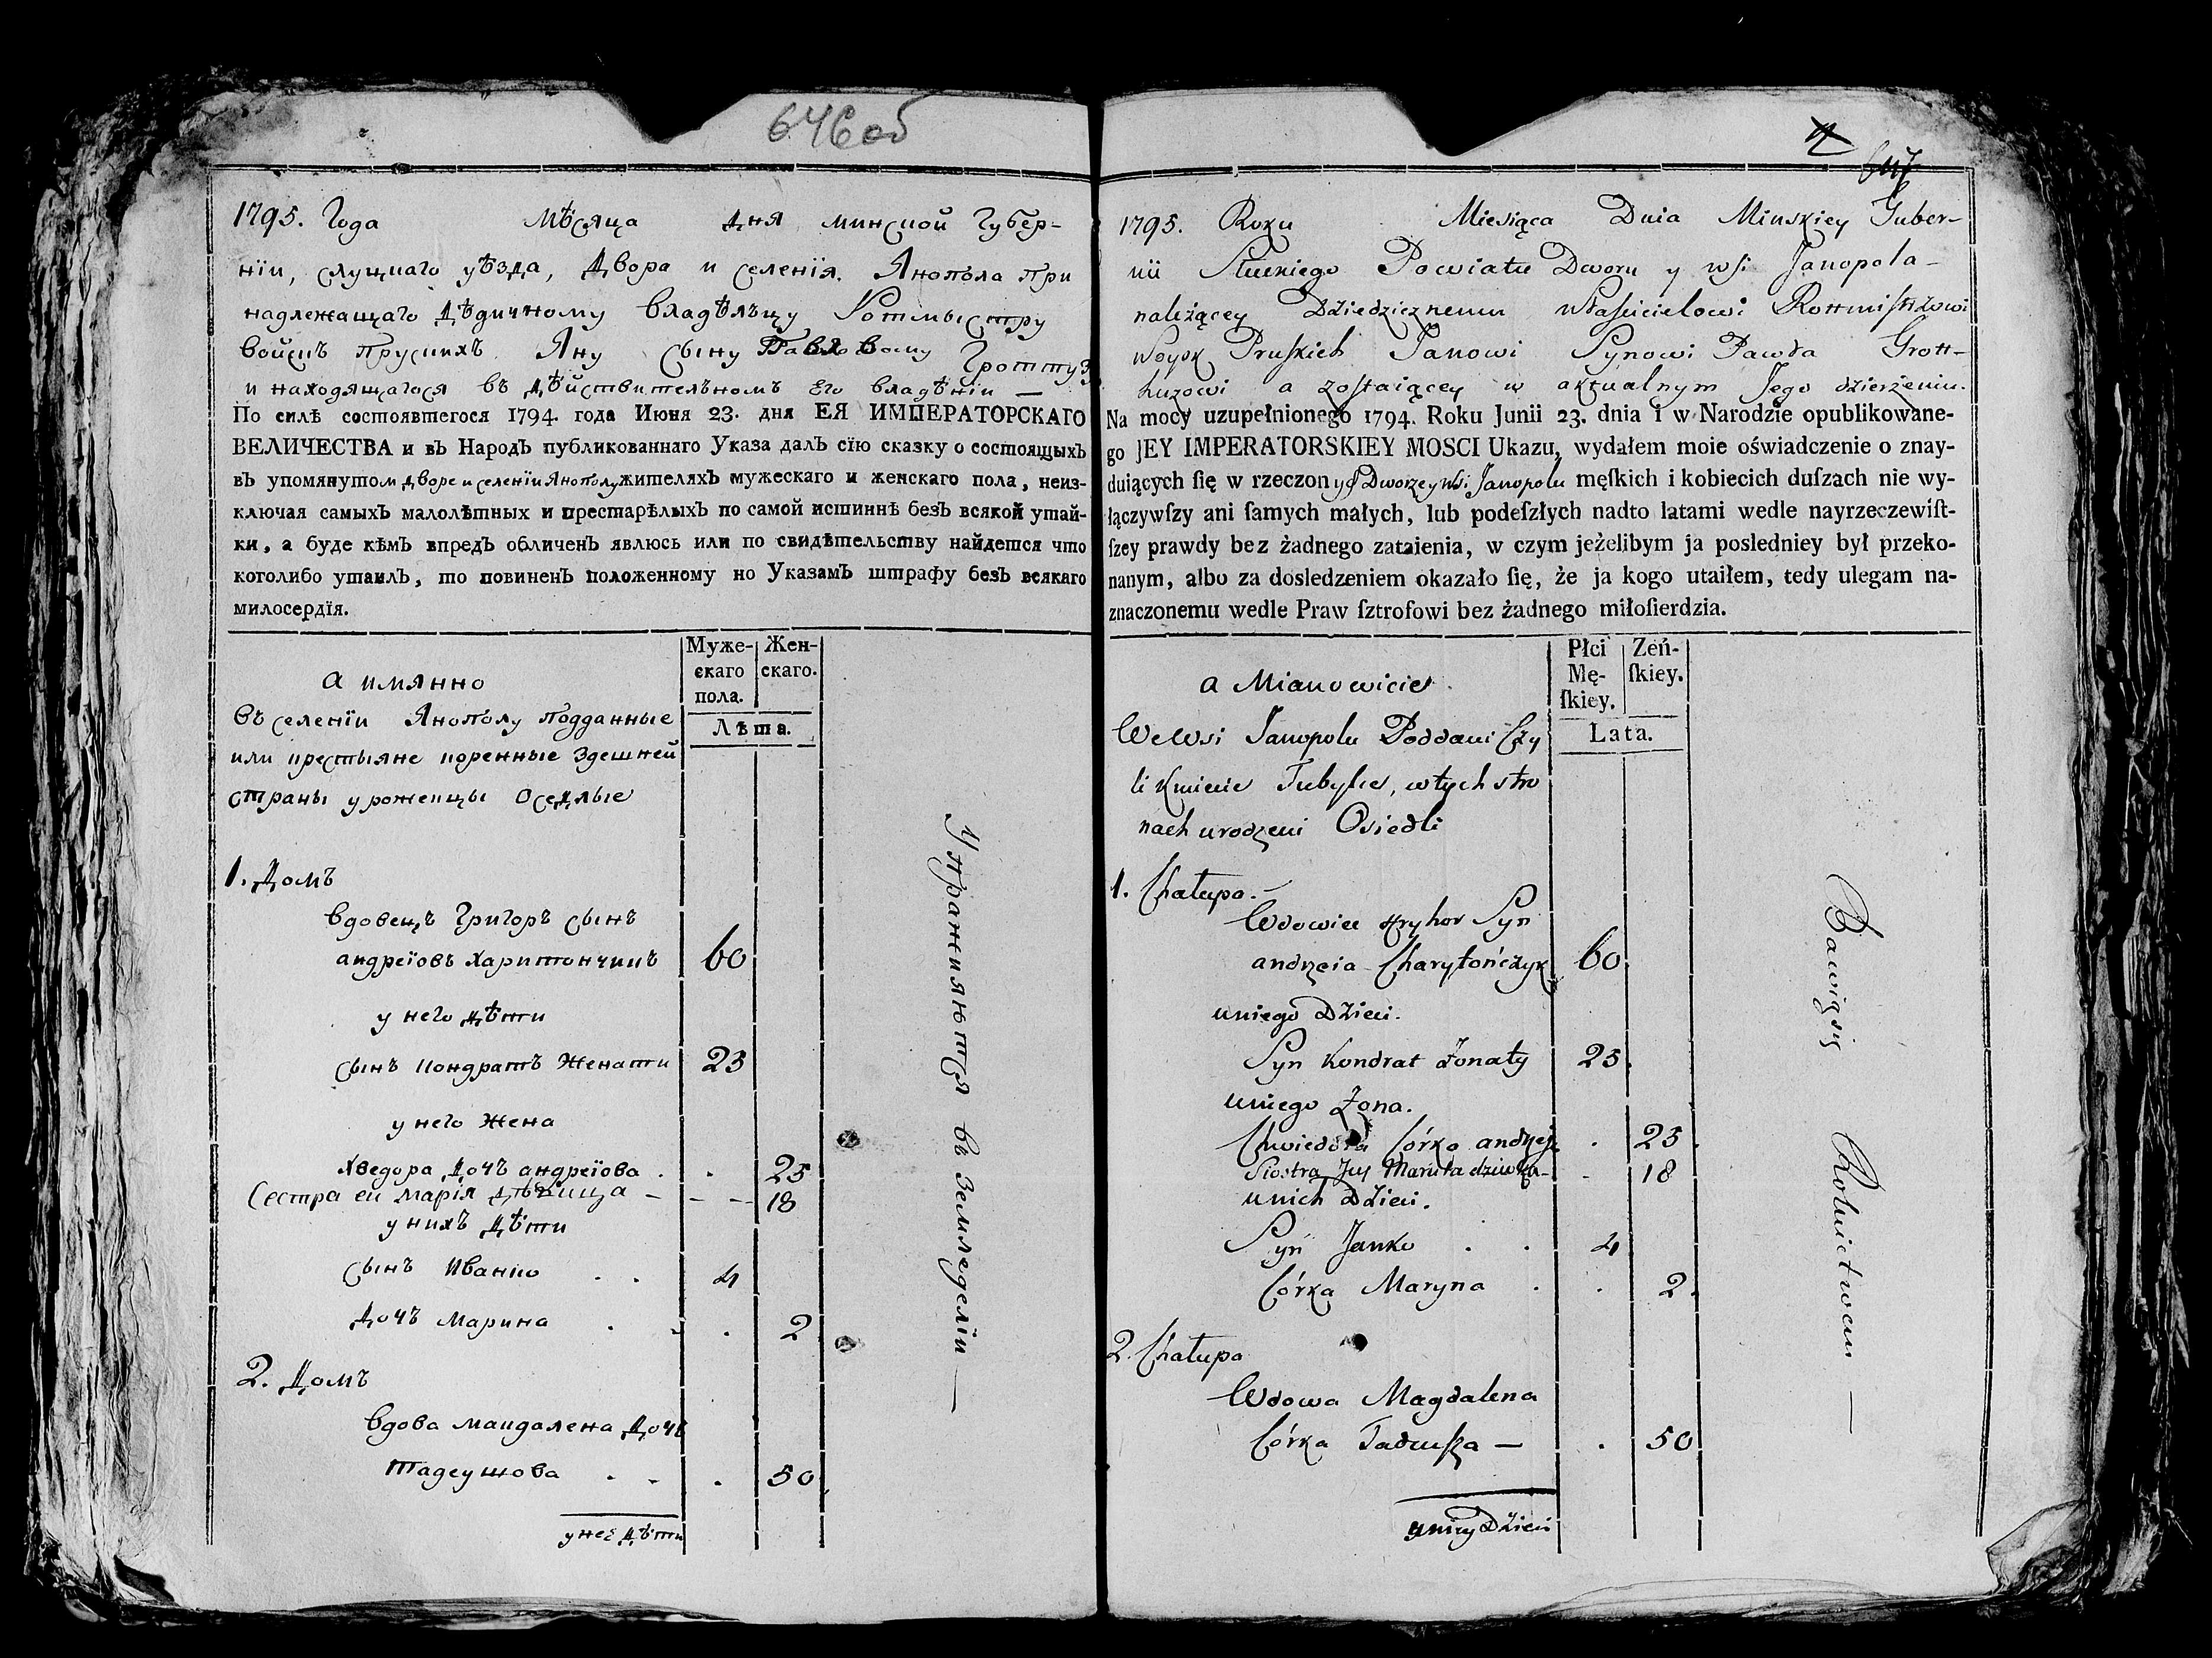 646об
1795. Года Мѣсяца дня минской Губер-
нїи, слуцкаго уѣзда, Двора и селенїя Янопола при
надлежащаго дѣдичному владѣльцу Ротмыстру
войскъ прускихъ Яну сыну Павловому Гроттуз
и находящагося въ дѣйствительномъ его владѣнїи —
По силѣ состоявшегося 1794. года Июня 23. дня ЕЯ ИМПЕРАТОРСКАГО
ВЕЛИЧЕСТВА и въ Народъ публикованнаго Указа далъ сїю сказку о состоящыхъ
въ упомянутом дворе и селенїи Янополу жителяхъ мужескаго и женскаго пола, неиз-
ключая самыхъ малолѣтныхъ и престарѣлыхъ по самой истиннѣ безъ всякой утай-
ки, а буде кѣмъ впредъ обличенъ явлюсь или по свидѣтельству найдется что
коголибо утаилъ, то повиненъ положенному но Указамъ штрафу безъ всякаго
милосердїя.
Муже-
скаго
пола.
Жен-
скаго.
Лѣта.
а имянно
въ селенїи Янополу подданные
или крестьяне коренные здешней
страны уроженцы оседлые
1. Домъ
вдовецъ Григоръ сынъ
андреїовъ харитончикъ 60
у него дѣти
сынъ кондратъ женати 23
у него жена
хведора дочъ андреїова . . 25
Сестра еи марїя дѣвица - - - 18
у нихъ дѣти
сынъ иванко . . 4
дочъ марина . . . 2
2. Домъ
вдова магдалена дочь
тадеушова . . . 50
у неё дѣти
Упражняются въ земледелїи —
647
1795. Roku Miesiąca Dnia Minskiey Guber-
nii Słuckiego Powiatu Dworu y wsi Janopola
należącey Dziedzicznemu Właścicielowi Rottmiſtrzowi
Woysk Pruſkich Janowi Synowi Pawła Grott-
huzowi a zoſtaiącey w aktualnym Jego dzierżeniu.
Na mocy uzupełnionego 1794. Roku Junii 23. dnia i w Narodzie opublikowane-
go JEY IMPERATORSKIEY MOSCI Ukazu, wydałem moie oświadczenie o znay-
duiących ſię w rzeczonym Dworze y wsi Janopolu męſkich i kobiecich duſzach nie wy-
łączywſzy ani ſamych małych, lub podeſzłych nadto latami wedle nayrzeczewiſt-
ſzey prawdy bez żadnego zataienia, w czym jeżelibym ja posledniey był przeko-
nanym, albo za dosledzeniem okazało ſię, że ja kogo utaiłem, tedy ulegam na-
znaczonemu wedle Praw ſztrofowi bez żadnego miłoſierdzia.
Płci
Mę-
ſkiey.
Zeń-
ſkiey.
Lata.
a Mianowicie
We Wsi Janopolu Poddani Czy
li Kmiecie Tubylce, w tych stro
nach urodzeni Osiedli
1. Chałupa.
Wdowiec Hryhor Syn
andrzeia Charytończyk 60
u niego Dzieci.
Syn Kondrat Żonaty 23
u niego Żona.
Chwiedora Córka andrzeja . 25
Siostra Jey Maruta dziewka - 18
u nich Dzieci.
Syn Janko . . 4
Córka Maryna . . 2
2. Chałupa
Wdowa Magdalena
Córka Tadeuſza — . 50
u niey Dzieci
Bawią się Rolnictwem —